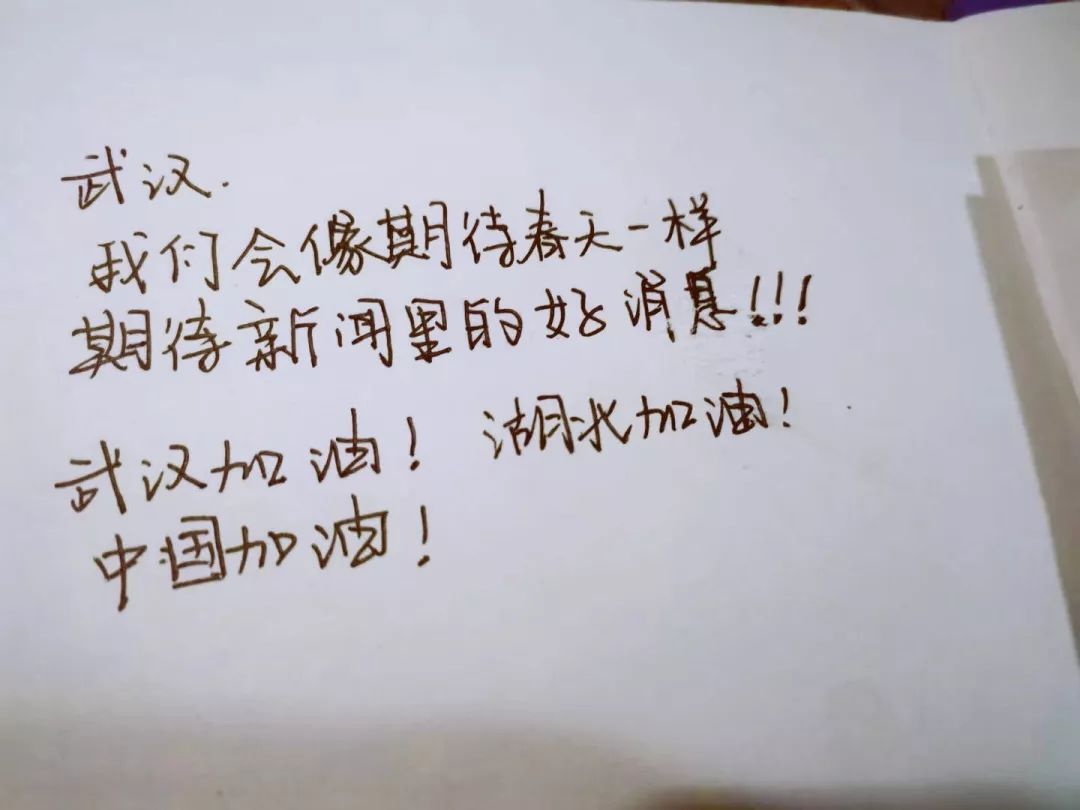 武汉.
我们会像期待春天一样
期待新闻里的好消息!!!
武汉加油! 湖北加油!
中国加油!